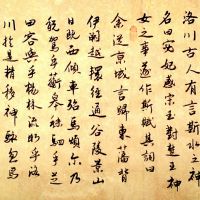 洛川古人有言斯水之神
名曰宓妃感宋玉對楚王神
女之事遂作斯賦其詞曰
余從京城言歸東藩背
伊闕越轘轅經通谷陵景山
日既西傾車殆馬煩爾乃
稅駕乎蘅皋秣駟乎芝
田容與乎楊林流眄乎洛
川於是精移神駭忽焉